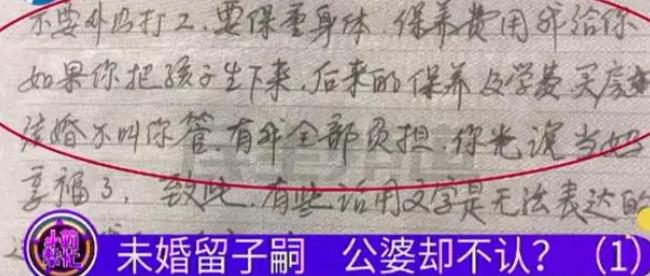 不要外出打工,要保重身体.保养费用我给你
如果你把孩子生下来,后来的保养及学费买房
结婚不叫你管,有我全部负担.你光说当奶
享福了,致此,有些话用文字是无法表达的
未婚留子嗣 公婆却不认?(1)